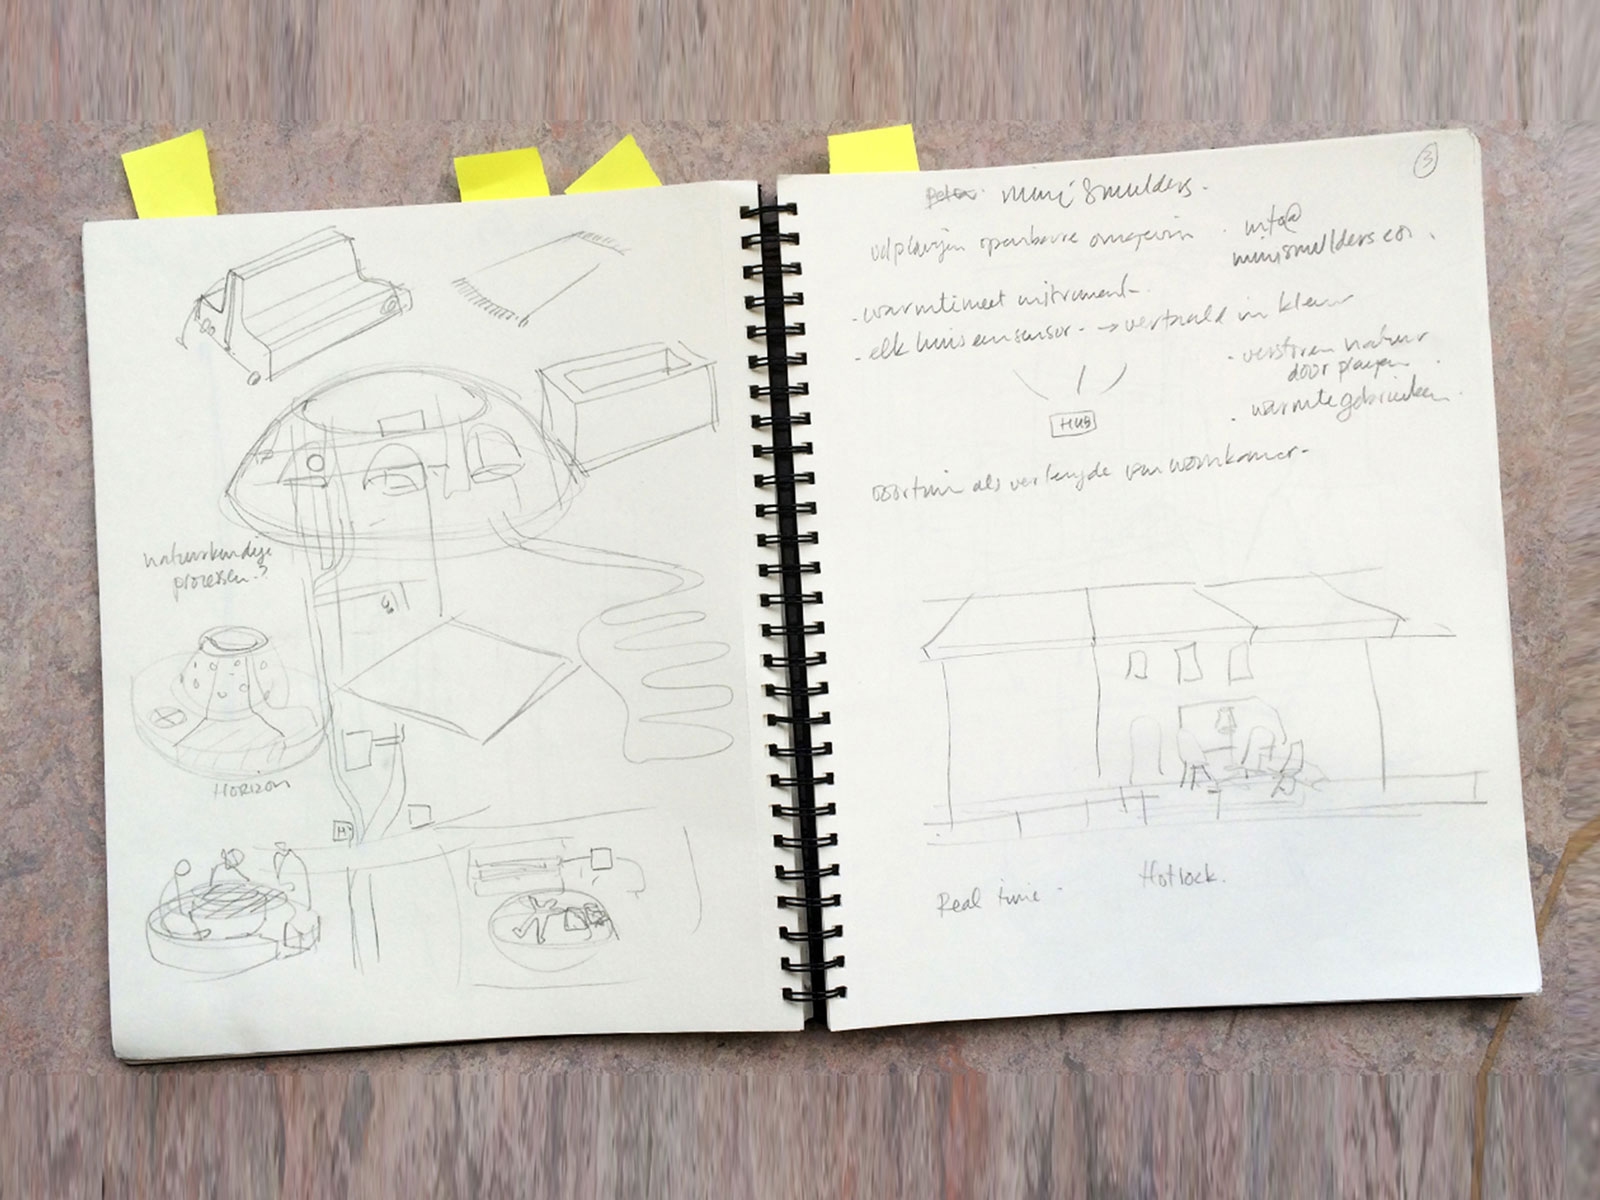 natuurkundige
processen?
HORIZON
H
3
mini Smulders.
openbare omgeving
info@
minismulders.com
- warmtemeet instrument -
- elk huis een sensor - → vertaald in kleur
HUB
door
. warmte gebruiken
voortuin als verlengde van woonkamer -
Hotlock.
Real time -